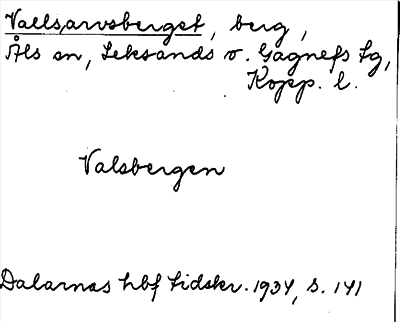 Vallsarvsberget, berg,
Åls sn, Leksands o. Gagnefs tg,
Kopp. l.
Valsbergen
Dalarnas hbf tidskr. 1934, s. 141